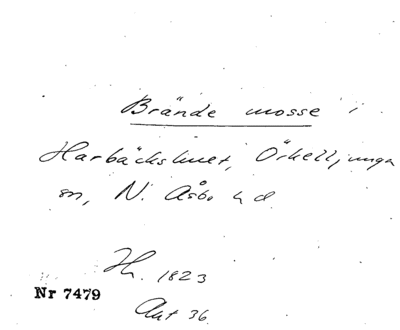 Brände mosse i
Harbäckshult, Örkelljunga
sn, N. Åsbo hd
Hh. 1823
Nr 7479
Akt 36